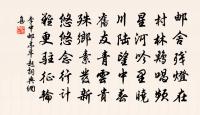 郵舍殘燈在
村林鷄唱頻
星河吟裏曉
川陸望中春
舊友青雲貴
殊鄉素髮新
悠悠念行計
難更駐征輪
李中郵亭早起詩典網
集